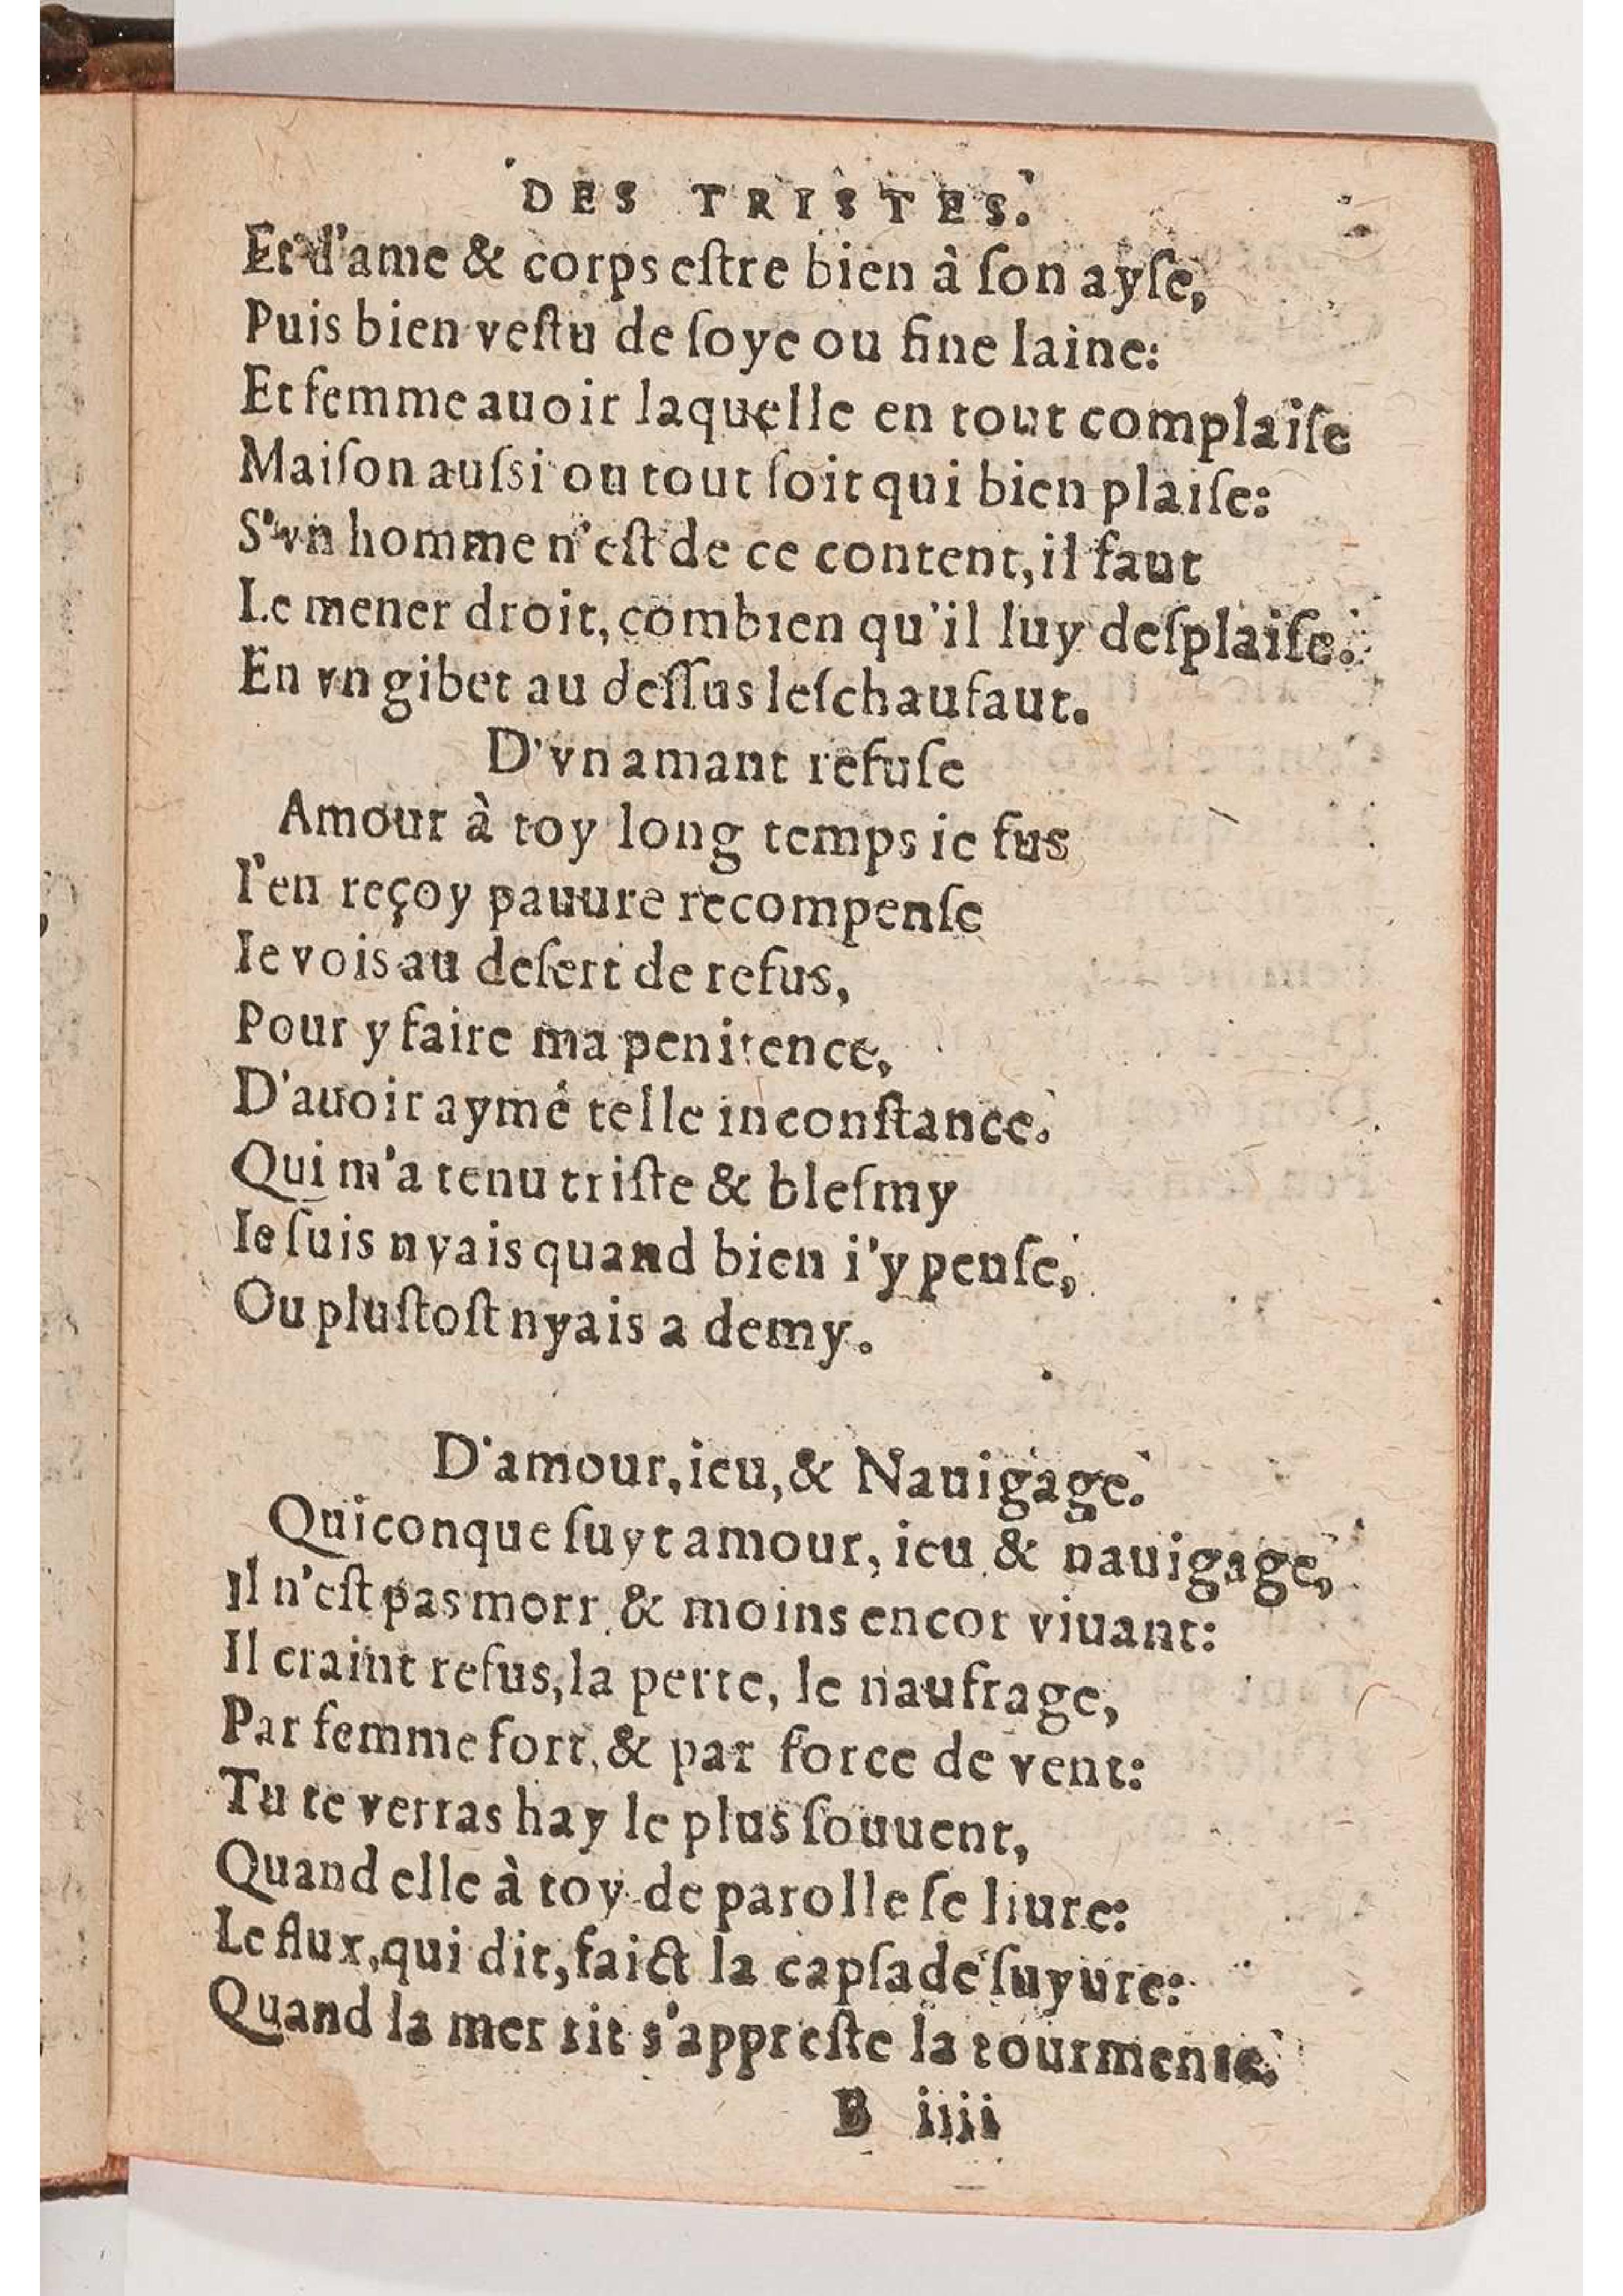 DES TRISTES.
Et d'ame & corps eſtre bien à ſon ayſe,
Puis bien veſtu de ſoye ou fine laine:
Et femme auoir laquelle en tout complaiſe
Maiſon auſsi ou tout ſoit qui bien plaiſe:
S'vn homme n'eſt de ce content, il faut
Le mener droit, combien qu'il luy deſplaiſe.
En vn gibet au deſſus leſchaufaut.
D'vn amant refuſe
Amour à toy long temps ie fus
I'en reçoy pauure recompenſe
Ie vois au deſert de refus,
Pour y faire ma penitence,
D'auoir aymé telle inconſtance.
Qui m'a tenu triſte & bleſmy
Ie ſuis nyais quand bien i'y penſe,
Ou pluſtoſt nyais a demy.
D'amour, ieu, & Nauigage.
Quiconque ſuyt amour, ieu & nauigage,
Il n'eſt pas mort & moins encor viuant:
Il craint refus, la perte, le naufrage,
Par femme fort, & par force de vent:
Tu te verras hay le plus ſouuent,
Quand elle à toy de parolle ſe liure:
Le flux, qui dit, faict la capſade ſuyure:
Quand la mer rit s'appreſte la tourmente.
B iiii